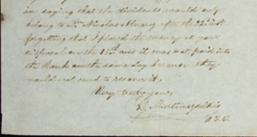 in saying that the dividends would only
belong to Dr. Nicolas Murray after the 22 inst
forgetting that I placed the money at your
disposal on the 15th and it was not paid into
the Bank on the same day because they
would not send to receive it.
Very truly yours